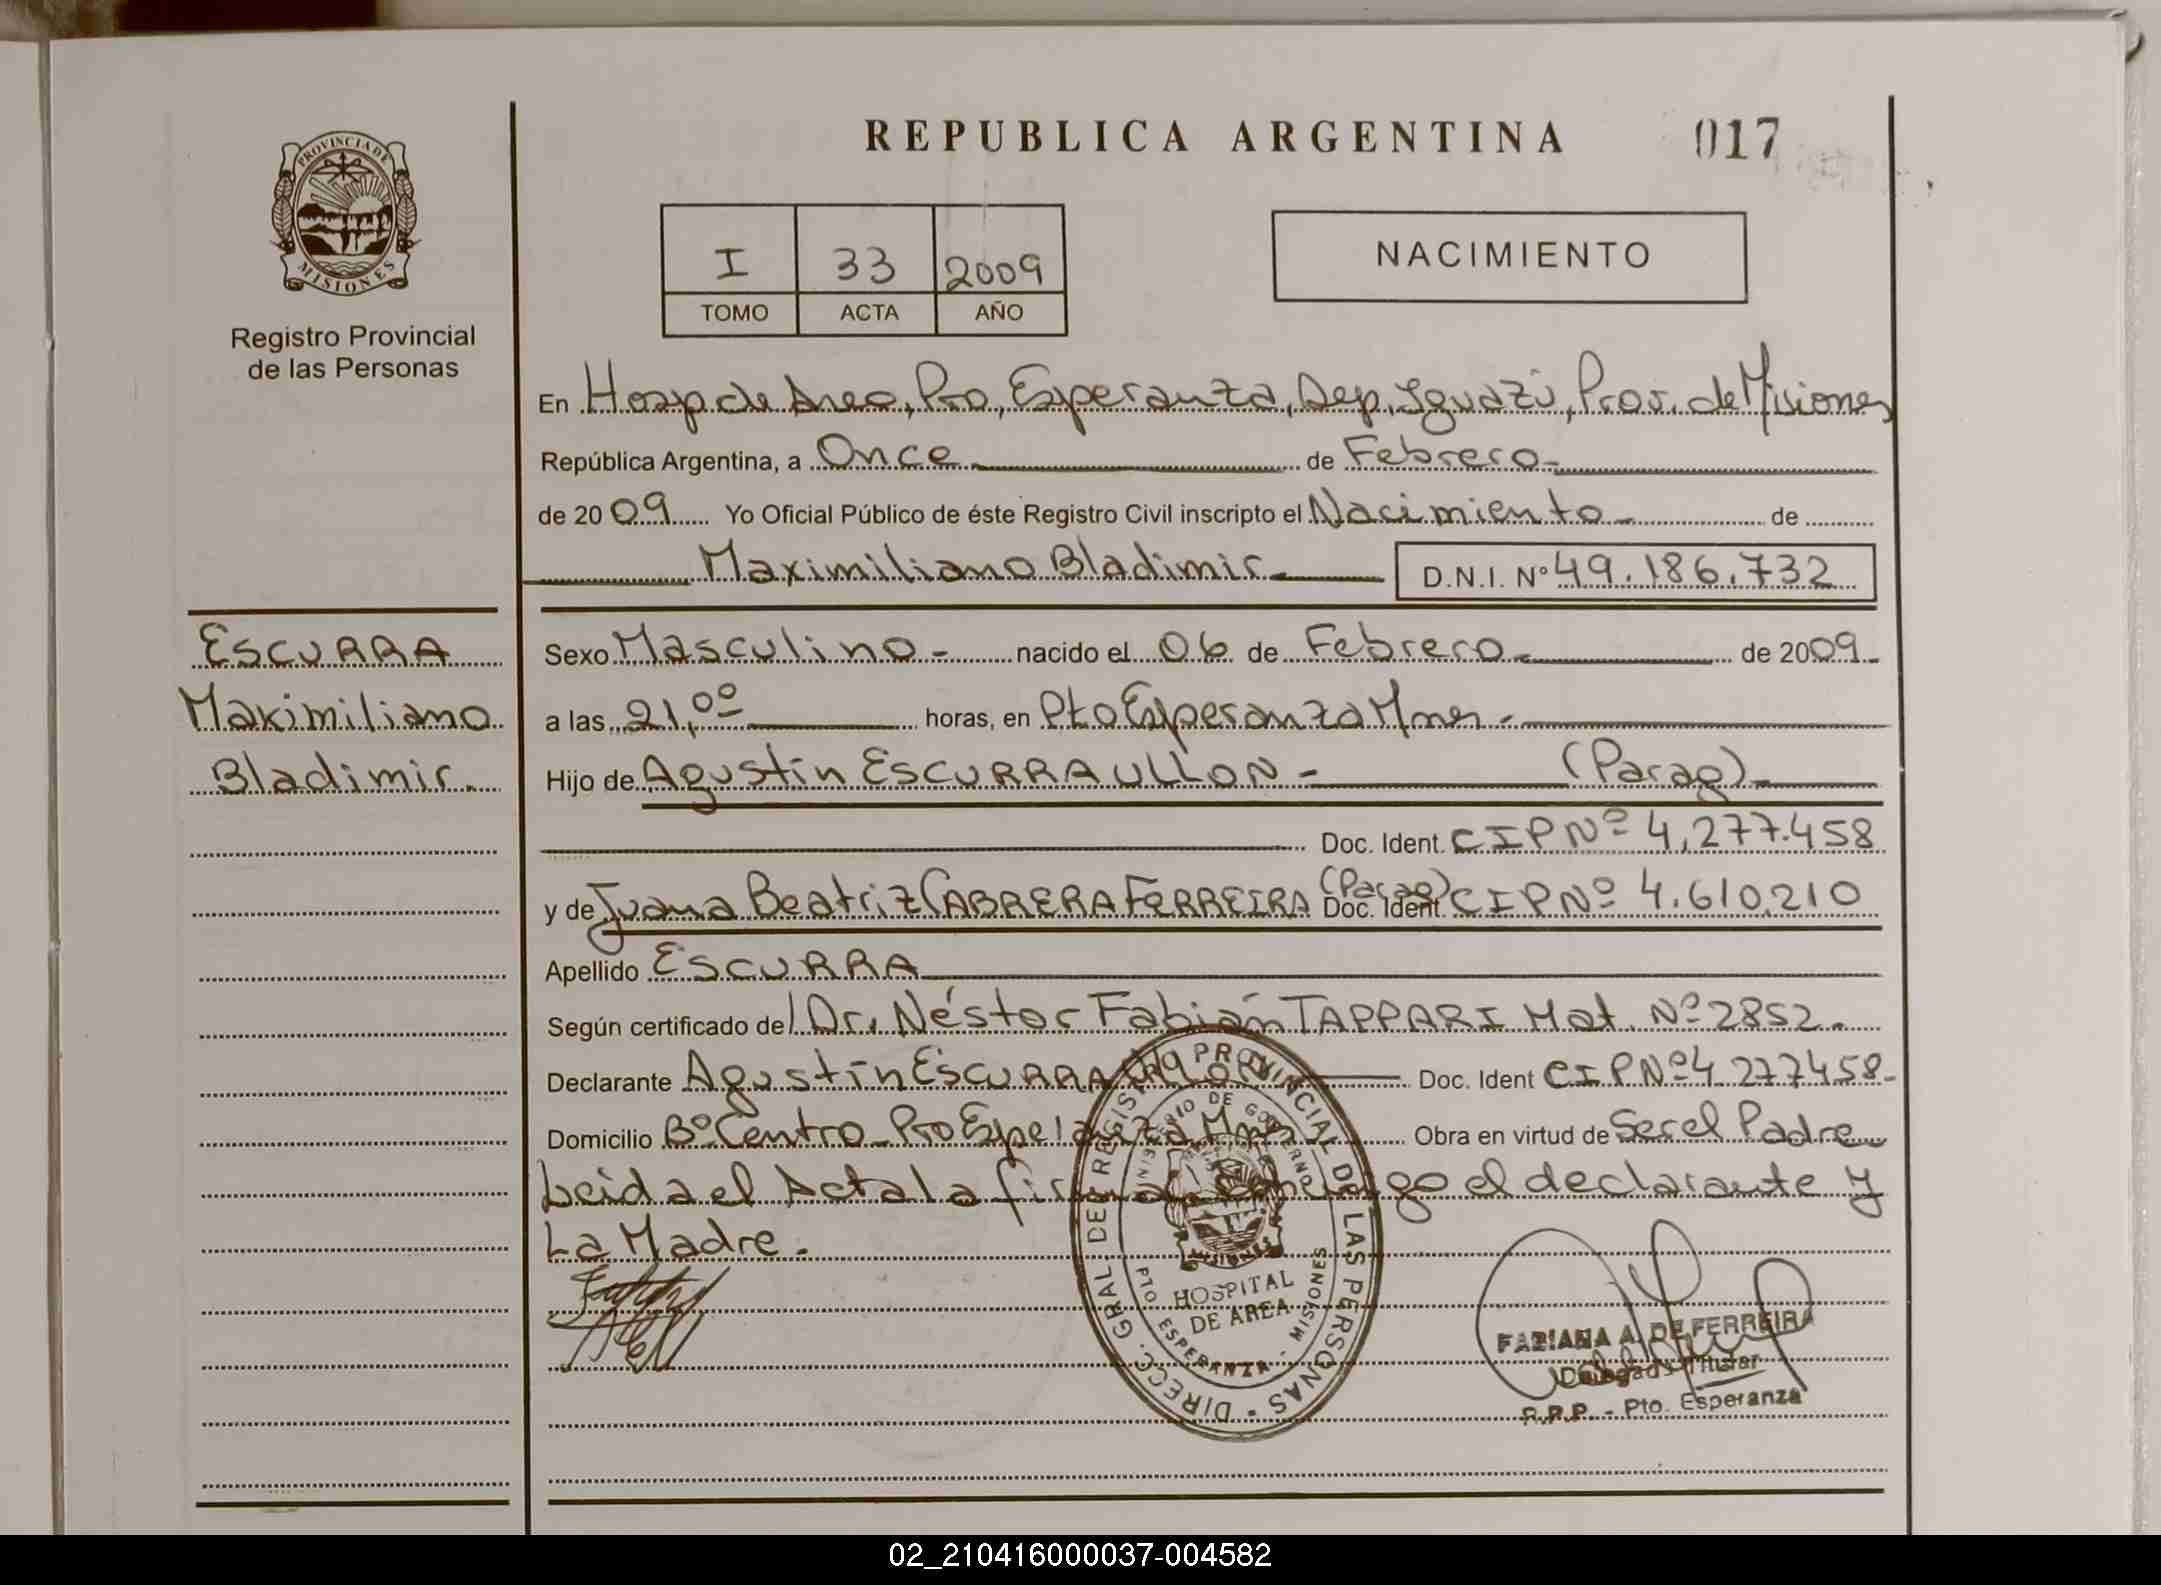 REPUBLICA ARGENTINA
017
PROVINCIA DE
MISIONES
Registro Provincial
de las Personas
I 33 2009
TOMO ACTA AÑO
NACIMIENTO
En Hosp de Area, Pto, Esperanza, Dep. Iguazú, Prov. de Misiones
República Argentina, a Once de Febrero
de 2009 Yo Oficial Público de éste Registro Civil inscripto el Nacimiento de
Maximiliano Bladimir D.N.I. Nº 49.186.732
ESCURRA
Maximiliano
Bladimir.
Sexo Masculino - nacido el 06 de Febrero de 2009
a las 21,00 horas, en Pto Esperanza Mnes -
Hijo de Agustín ESCURRA ULLON - (Parag)
Doc. Ident. CIP Nº 4,277.458
y de Juana Beatriz CABRERA FERREIRA (Parag) Doc. Ident. CIP Nº 4.610.210
Apellido ESCURRA
Según certificado del Dr. Néstor Fabián TAPPARI Mat. Nº 2852.
Declarante Agustín ESCURRA Doc. Ident CIP Nº 4 277458-
Domicilio Bº Centro Pto Esperanza Mnes Obra en virtud de Ser el Padre
Leida el Acta la firman conmigo el declarante y
La Madre.
DIRECC. GRAL DE REGISTRO PROVINCIAL DE LAS PERSONAS
MINISTERIO DE GOBIERNO
MISIONES
HOSPITAL
DE AREA
PTO ESPERANZA - MISIONES
FABIANA A. DE FERREIRA
Delegada Titular
R.P.P. - Pto. Esperanza
02_210416000037-004582